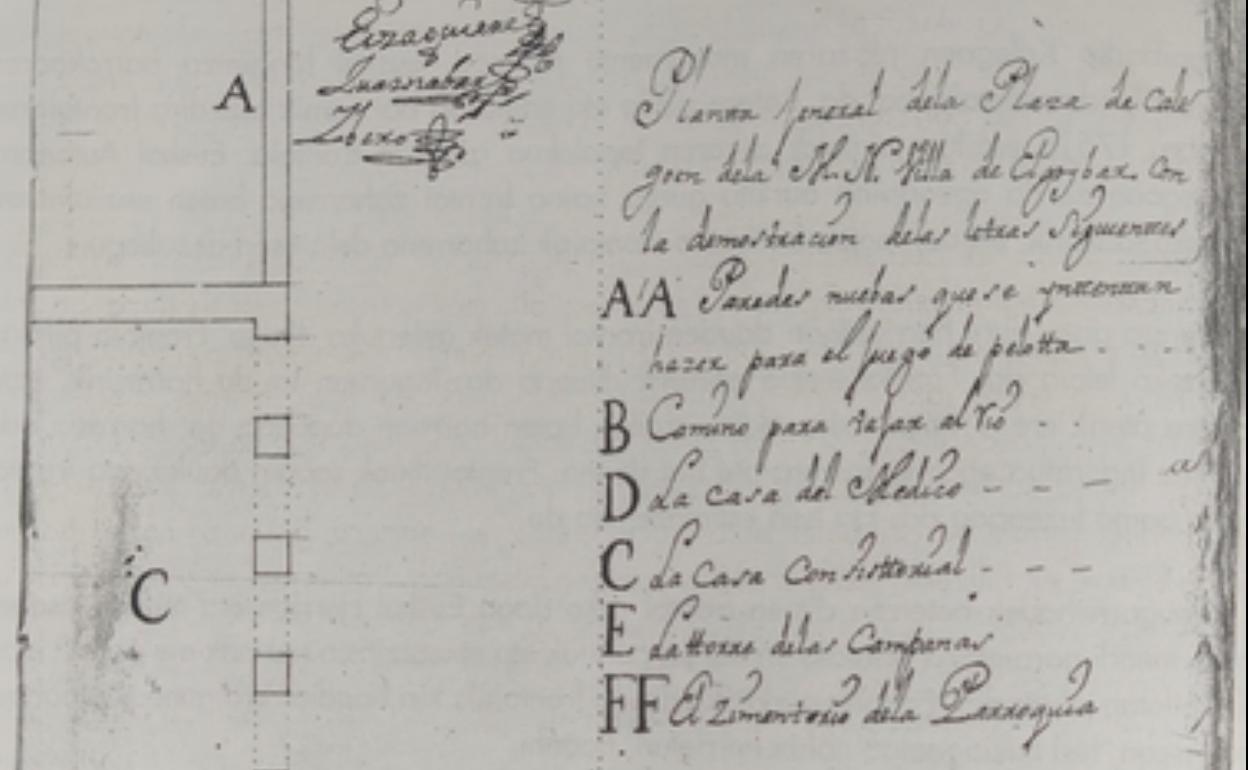 A
Planta general dela Plaza de Cale
goen dela M. N. Villa de Elgoybar. Con
la demostración delas letras siguientes
A'A Paredes nuebas que se yntentan
hazer para el juego de pelotta
B Camino para vajar al rio
D La casa del Medico - - -
C La Casa Consisttorial - - -
E La ttorre delas Campanas
FF El zimenterio dela Parroquia
C